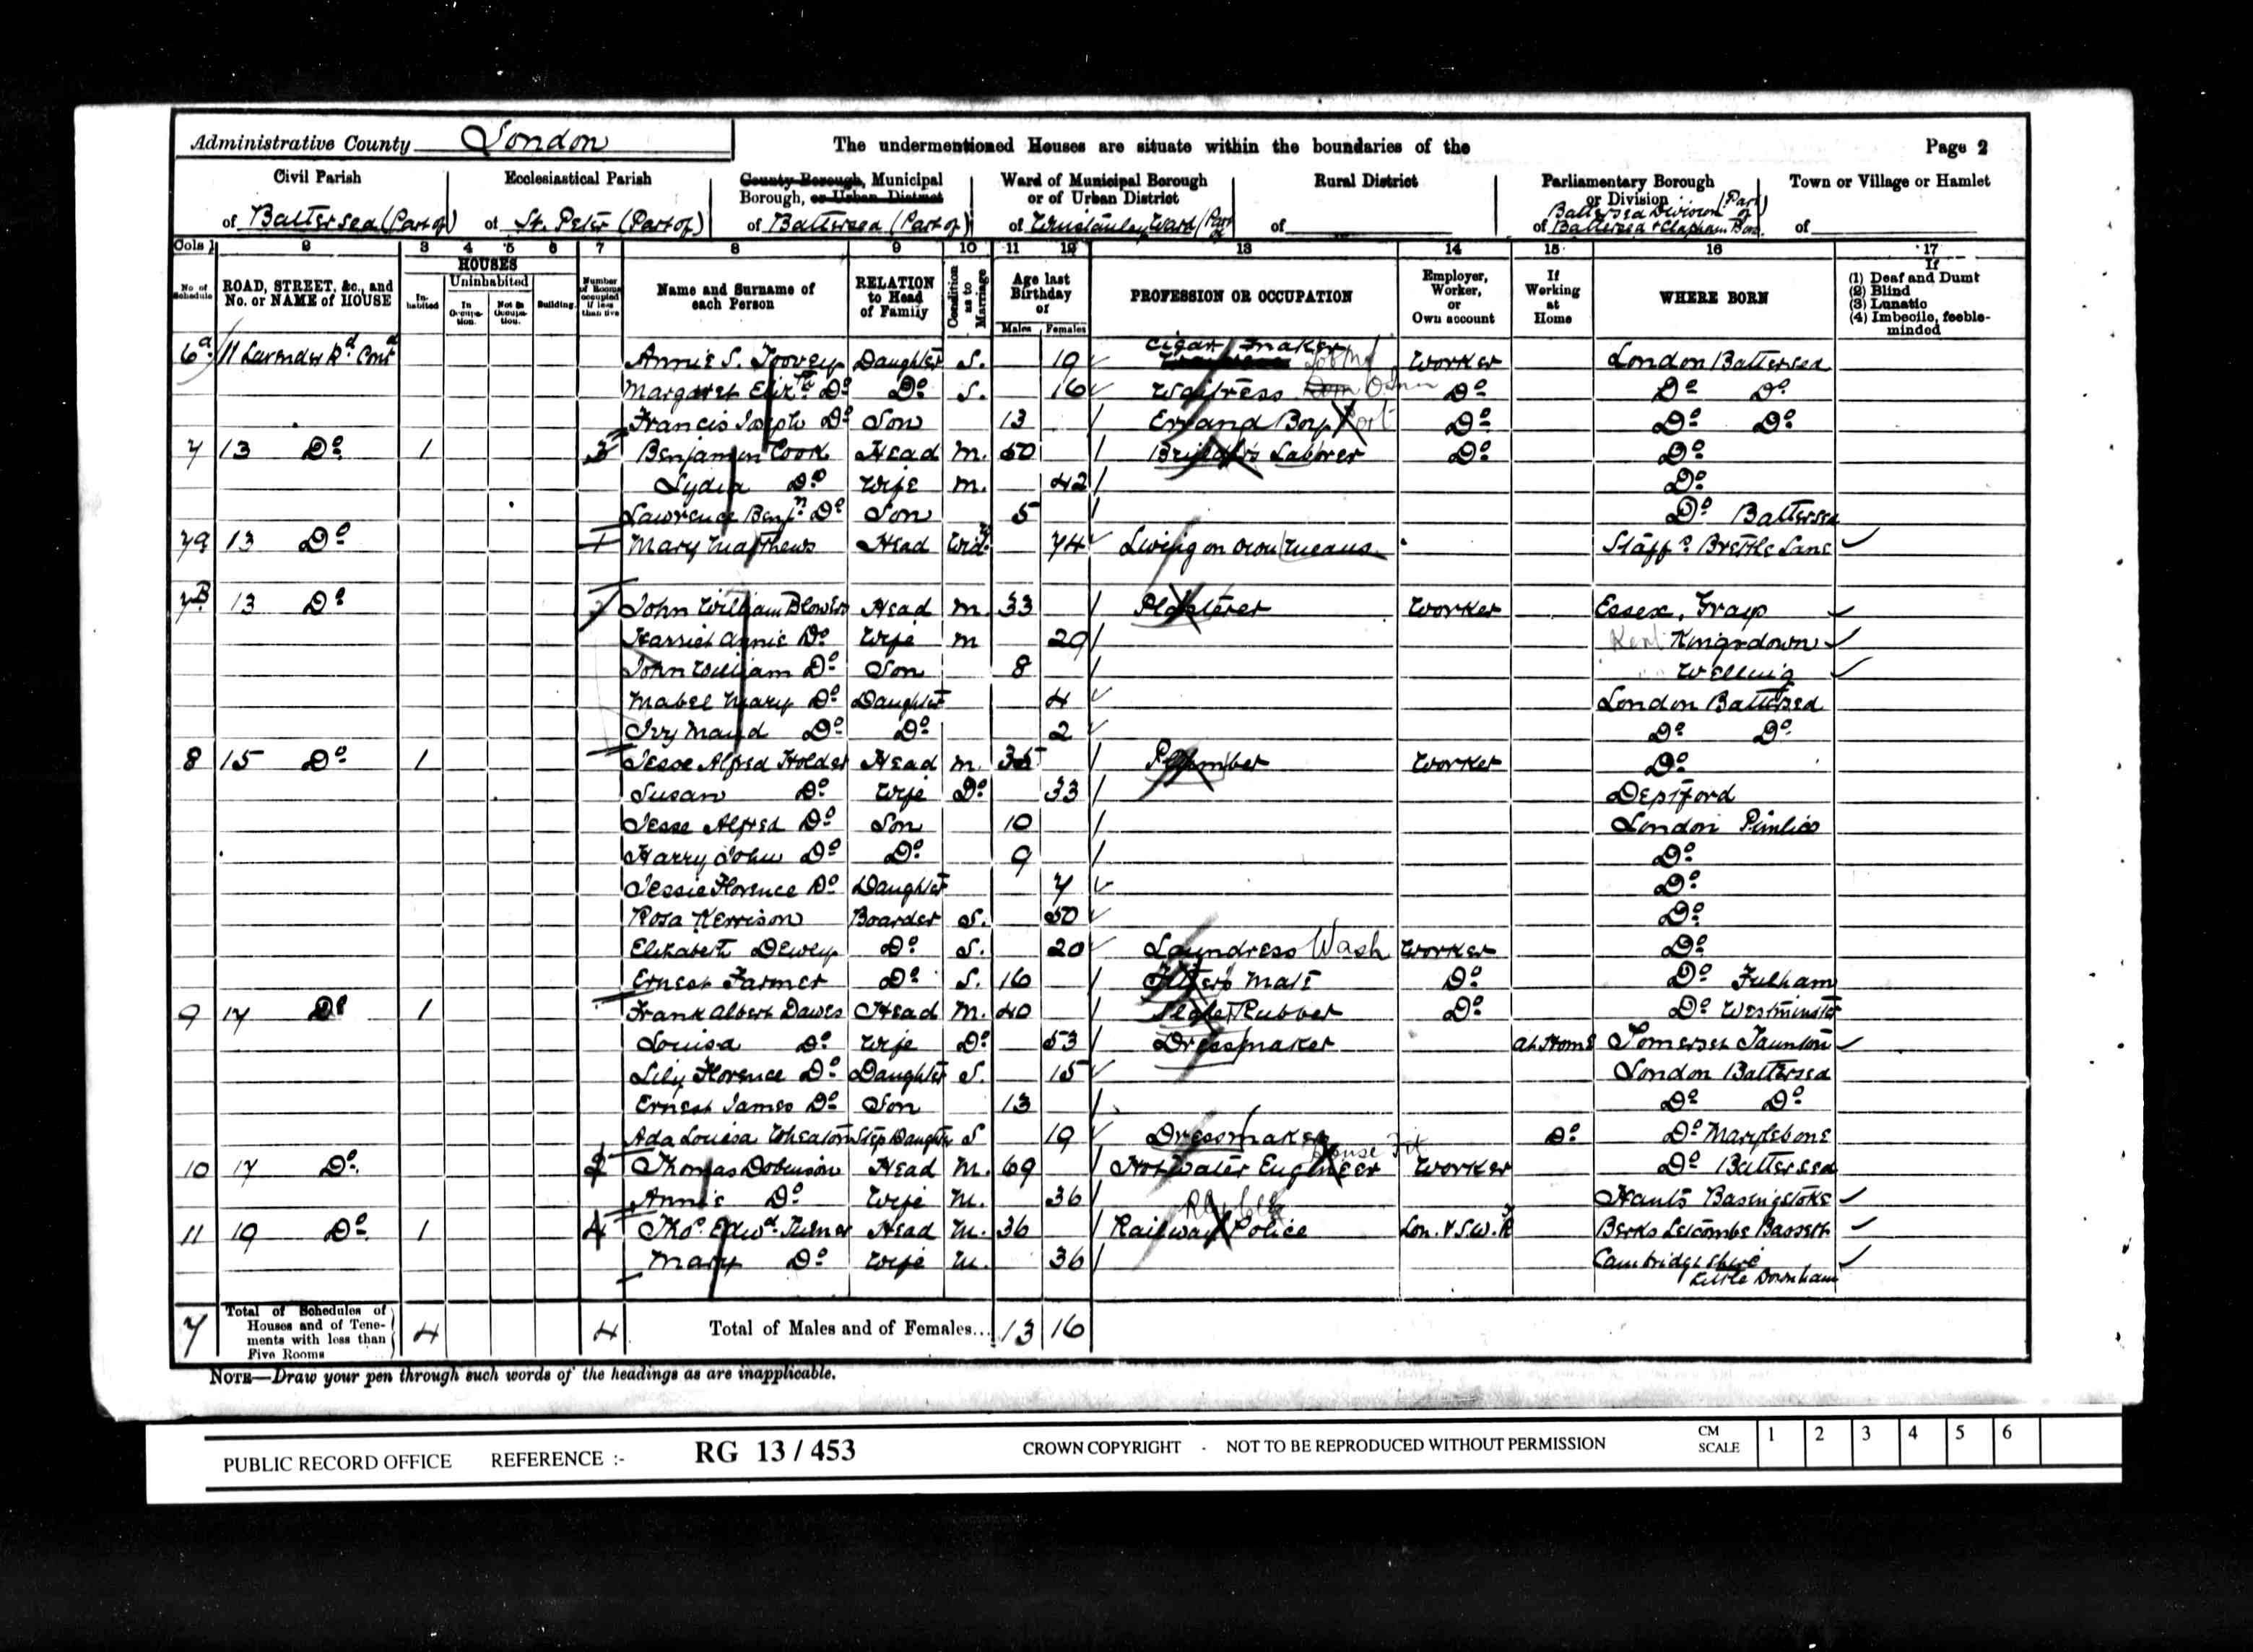 Administrative County London The undermentioned Houses are situate within the boundaries of the Page 2
Civil Parish Ecclesiastical Parish County Borough, Municipal Borough, or Urban District Ward of Municipal Borough or of Urban District Rural District Parliamentary Borough or Division Town or Village or Hamlet
of Battersea (Part of) of St. Peter (Part of) of Battersea (Part of) of Winstanley Ward (Part of of Battersea Division (Part of) of Battersea & Clapham Bor. of
Cols 1 2 3 4 5 6 7 8 9 10 11 12 13 14 15 16 17
No of Schedule ROAD, STREET, &c., and No. or NAME of HOUSE HOUSES Inhabited Uninhabited In Occupation. Not in Occupation. Building Number of Rooms occupied if less than five Name and Surname of each Person RELATION to Head of Family Condition as to Marriage Age last Birthday of Males Females PROFESSION OR OCCUPATION Employer, Worker, or Own account If Working at Home WHERE BORN If (1) Deaf and Dumb (2) Blind (3) Lunatic (4) Imbecile, feeble-minded
6a 11 Lavender Rd Contd Annie S. Toovey Daughter S. 19 Cigar maker Worker London Battersea
Margaret Elizth Do Do S. 16 Waitress Do Do Do
Francis Joseph Do Son 13 Errand Boy Port Do Do Do
7 13 Do 1 3 Benjamin Cook Head M. 50 Laborer Do Do
Lydia Do Wife M. 42 Do
Lawrence Benjn Do Son 5 Do Battersea
7a 13 Do 1 Mary Matthews Head Wid. 74 Living on own means Staffs Brettle Lane
7B 13 Do John William Blowers Head M. 33 Plasterer Worker Essex, Grays
Harriet Annie Do Wife M 29 Kent Kingsdown
John William Do Son 8 Welling
Mabel Mary Do Daughter 4 London Battersea
Ivy Maud Do Do 2 Do Do
8 15 Do 1 Jesse Alfred Holder Head M. 35 Plumber Worker Do
Susan Do Wife Do 33 Deptford
Jesse Alfred Do Son 10 London Pimlico
Harry John Do Do 9 Do
Jessie Florence Do Daughter 7 Do
Rosa Kerrison Boarder S. 50 Do
Elizabeth Dewey Do S. 20 Laundress Wash Worker Do
Ernest Farmer Do S. 16 Fitters Mate Do Do Fulham
9 17 Do 1 Frank Albert Dawes Head M. 40 Rubber Do Do Westminster
Louisa Do Wife Do 53 Dressmaker At Home Somerset Taunton
Lily Florence Do Daughter S. 15 London Battersea
Ernest James Do Son 13 Do Do
Ada Louisa Wheaton Step Daughter S 19 Dressmaker Do Do Marylebone
10 17 Do. 2 Thomas Dobinson Head M. 69 Hot water Engineer House Fit Worker Do Battersea
Annie Do Wife M. 36 Hants Basingstoke
11 19 Do. 1 4 Thos Edwd Turner Head M. 36 Railway Police Lon. & S.W. R Berks Letcombe Bassett
Mary Do Wife M. 36 Cambridgeshire Little Downham
7 Total of Schedules of Houses and of Tenements with less than Five Rooms 4 4 Total of Males and of Females... 13 16
NOTE—Draw your pen through such words of the headings as are inapplicable.
PUBLIC RECORD OFFICE REFERENCE :- RG 13 / 453 CROWN COPYRIGHT - NOT TO BE REPRODUCED WITHOUT PERMISSION CM SCALE 1 2 3 4 5 6